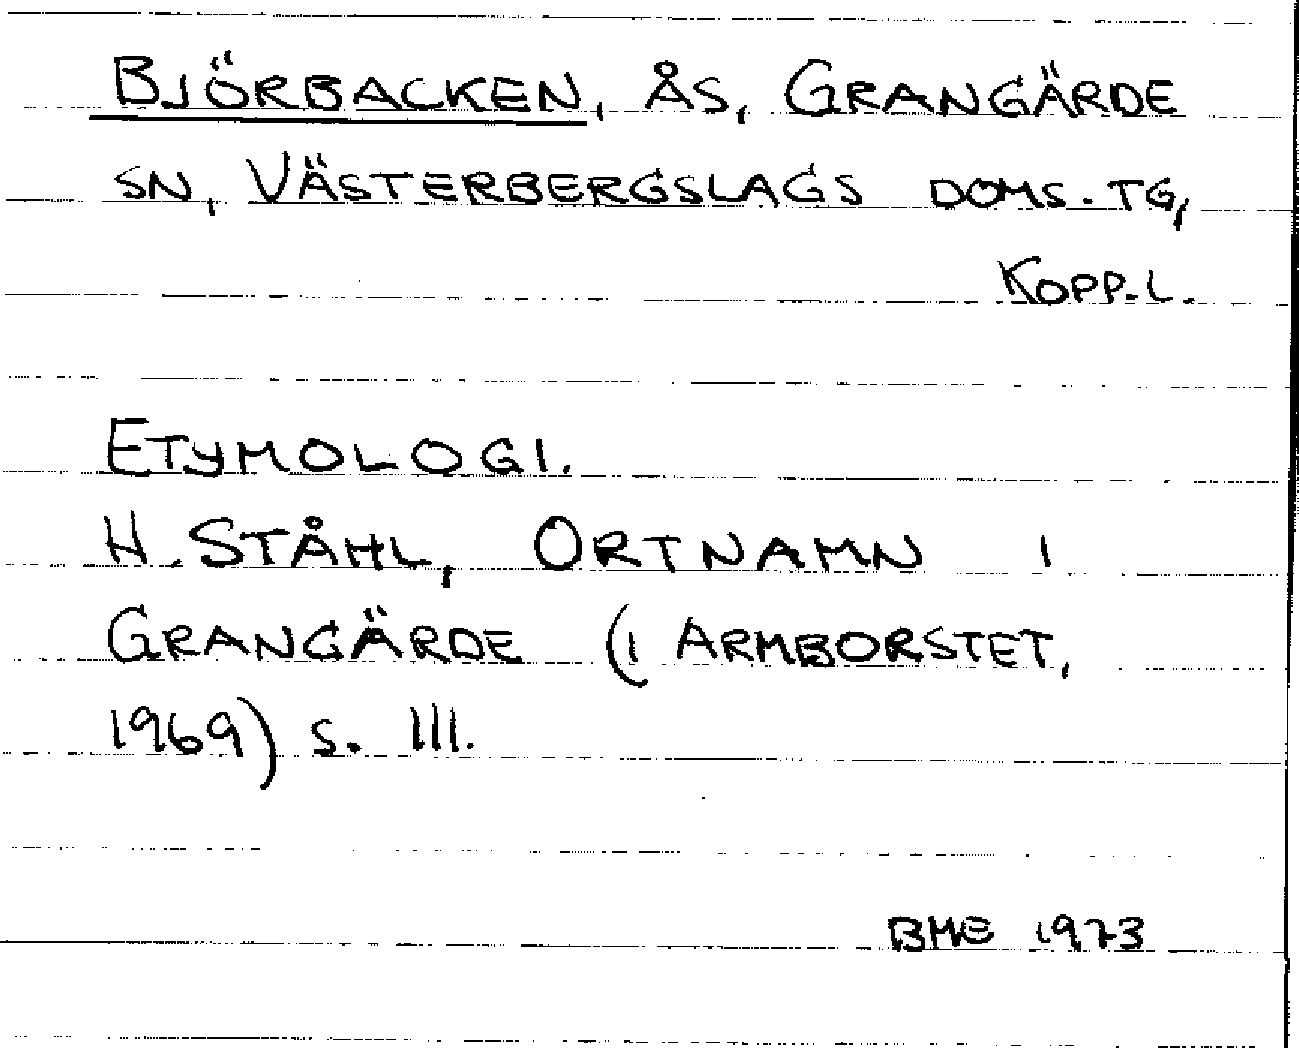 BJÖRBACKEN, ÅS, GRANGÄRDE
SN, VÄSTERBERGSLAGS DOMS.TG,
KOPP.L.
ETYMOLOGI.
H. STÅHL, ORTNAMN I
GRANGÄRDE (I ARMBORSTET,
1969) S. 111.
BME 1973